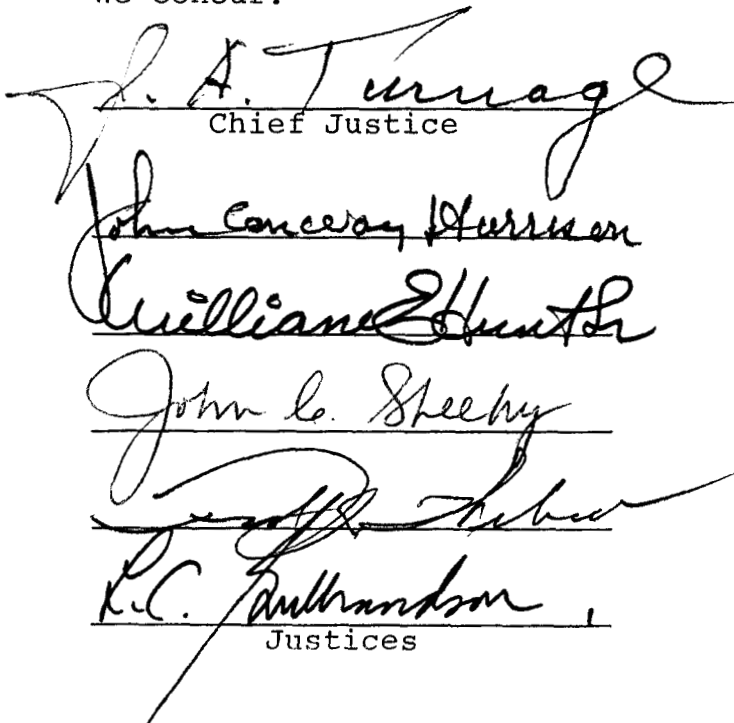 We concur:
J. A. Turnage
Chief Justice
John Conway Harrison
William E Hunt Sr
John C. Sheehy
L.C. Gulbrandson
Justices